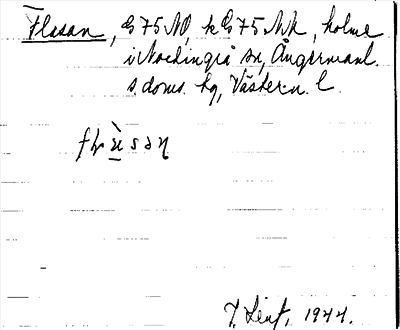 Flasan, G75NO, k G75NV, holme
i Nordingrå sn, Ångermanl.
s. doms. hg, Västern. l.
1944.